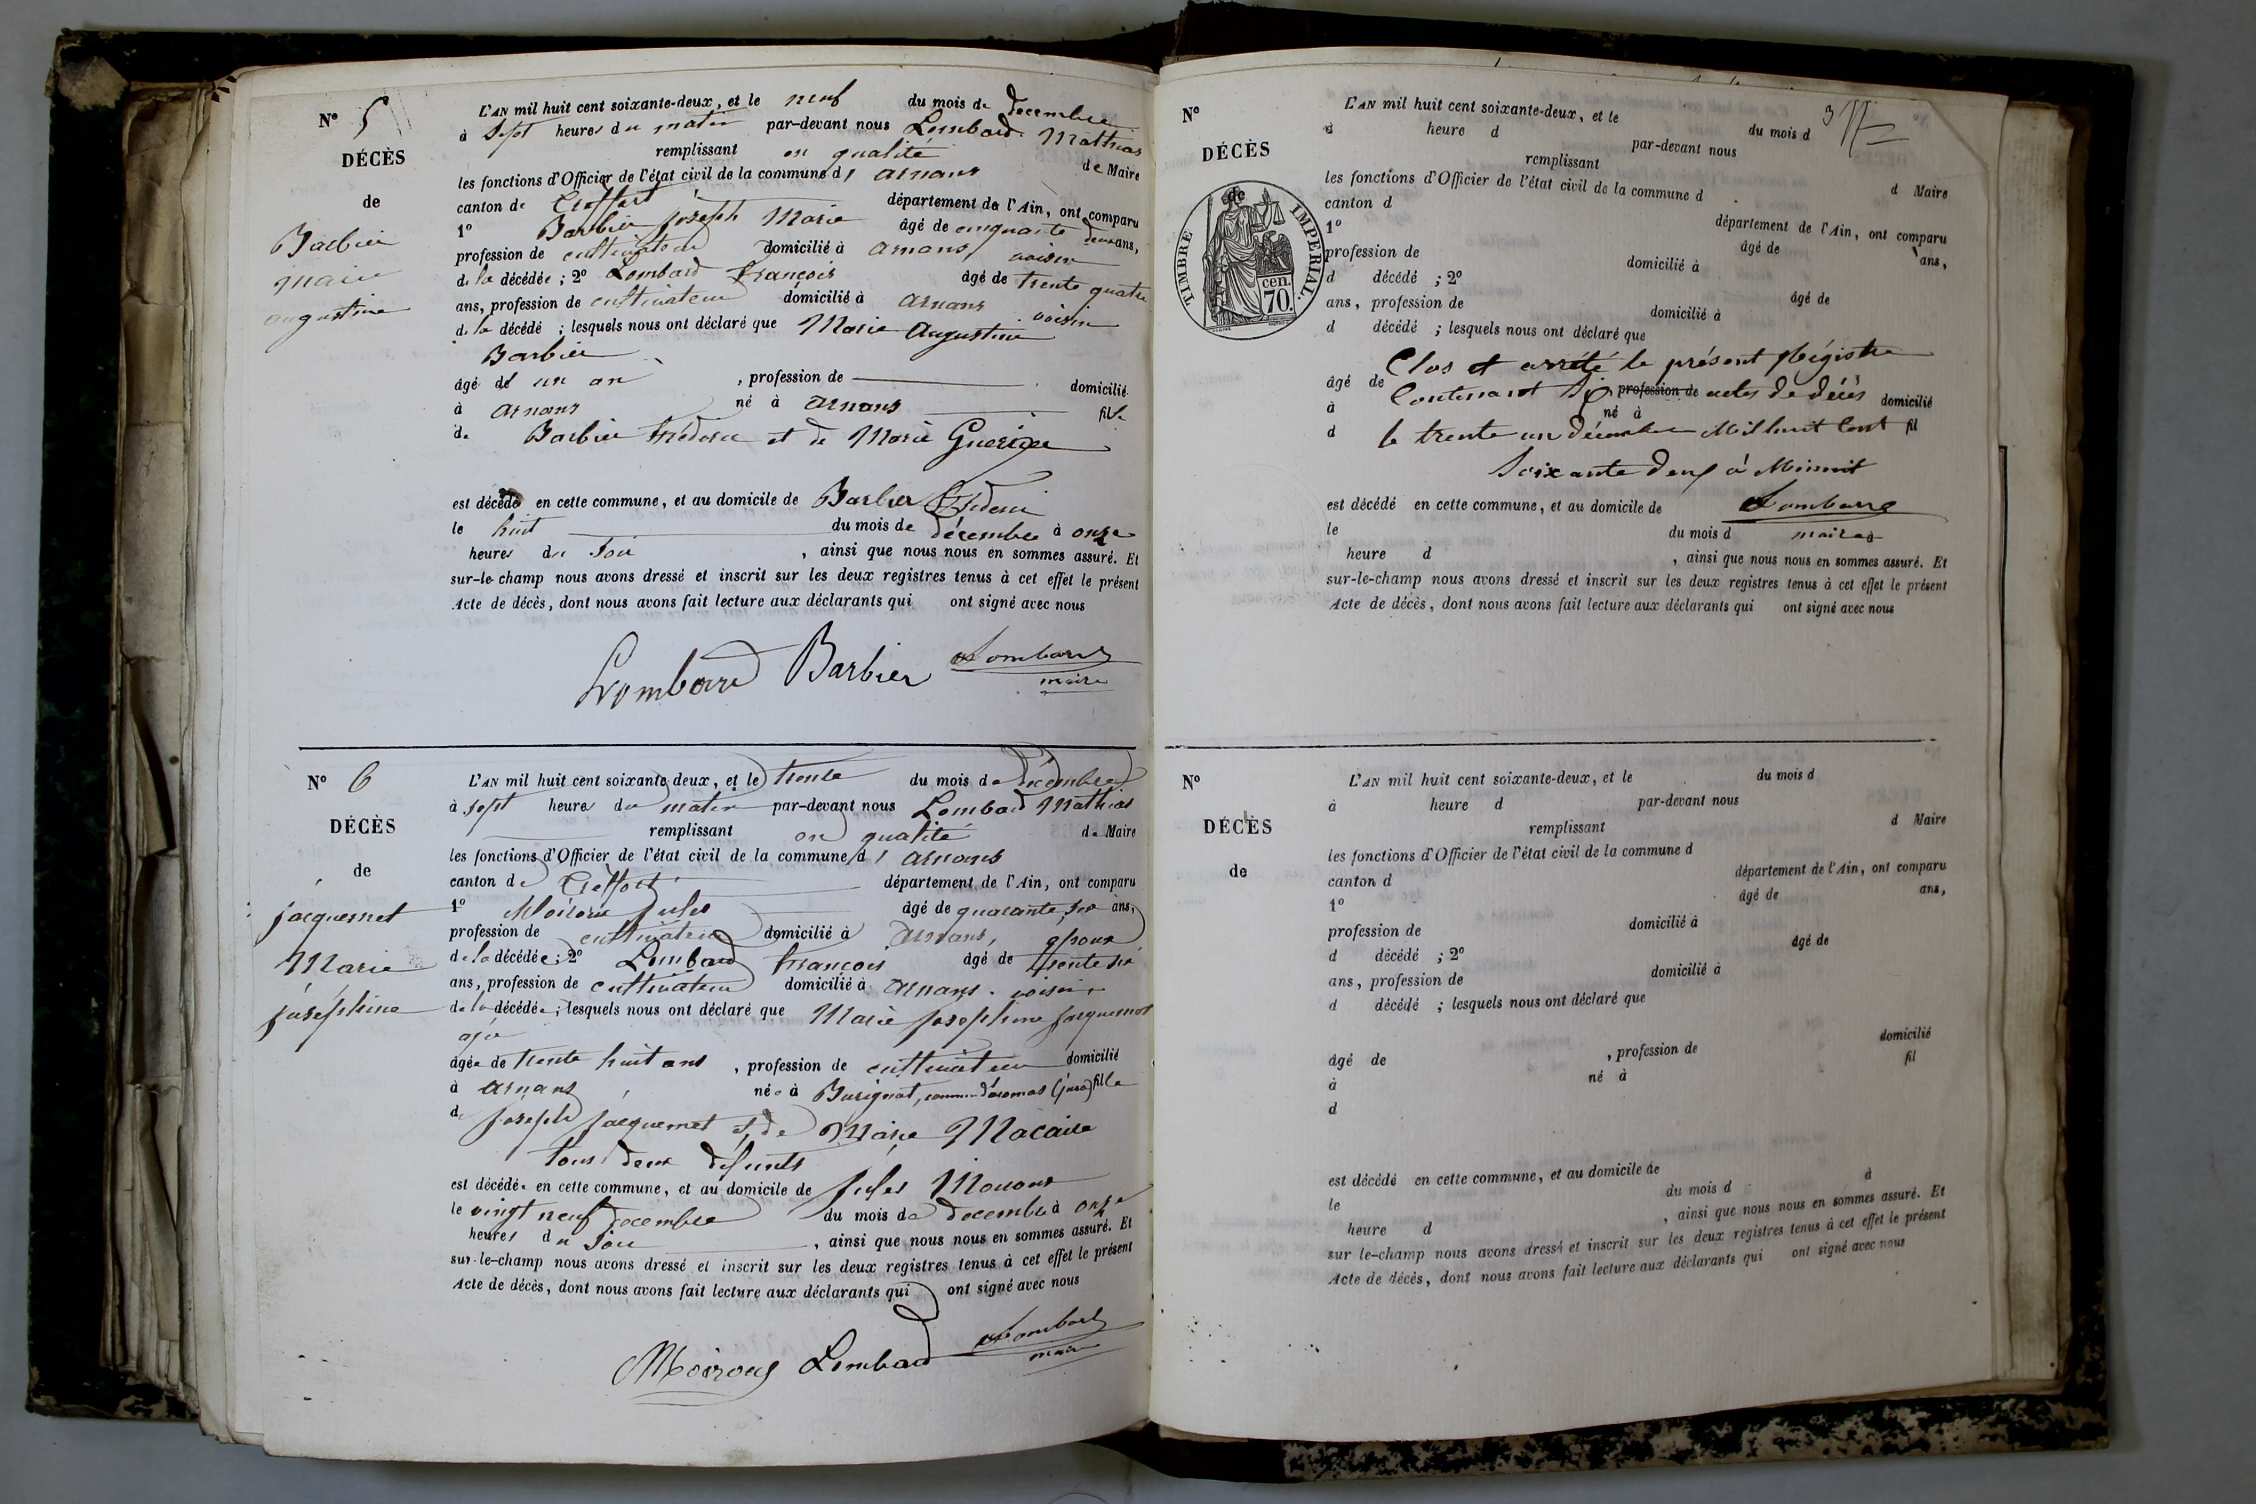 N° 5
DÉCÈS
de
Barbier
marie
augustine
L'AN mil huit cent soixante-deux, et le neuf du mois de décembre
à Sept heures du matin par-devant nous Lombard Mathias
remplissant en qualité de Maire
les fonctions d'Officier de l'état civil de la commune d' arnans
canton de Treffort département de l'Ain, ont comparu
1° Barbier joseph Marie âgé de cinquante deux ans,
profession de cultivateur domicilié à arnans, voisin
de la décédée ; 2° Lombard françois âgé de trente quatre
ans, profession de cultivateur domicilié à arnans voisin
de la décédé ; lesquels nous ont déclaré que Marie Augustine
Barbier
âgé de un an , profession de domicilié
à arnans né à arnans fille
de Barbier et de Marie
est décédé en cette commune, et au domicile de Barbier
le huit du mois de décembre à onze
heures du Soir , ainsi que nous nous en sommes assuré. Et
sur-le-champ nous avons dressé et inscrit sur les deux registres tenus à cet effet le présent
Acte de décès, dont nous avons fait lecture aux déclarants qui ont signé avec nous
Lombard Barbier Lombard
maire
N° 6
DÉCÈS
de
jacquemet
Marie
joséphine
L'AN mil huit cent soixante deux, et le trente du mois de décembre
à sept heures du matin par-devant nous Lombard Mathias
remplissant en qualité de Maire
les fonctions d'Officier de l'état civil de la commune d' arnans
canton de Treffort département de l'Ain, ont comparu
1° jules âgé de quarante ans,
profession de cultivateur domicilié à arnans, époux
de la décédée ; 2° Lombard françois âgé de trente
ans, profession de cultivateur domicilié à arnans voisin
de la décédée ; lesquels nous ont déclaré que Marie josephine jacquemet
âgée de trente huit ans , profession de cultivateur domicilié
à arnans née à commune d'aromas (jura) fille
de joseph jacquemet et de Marie
tous deux défunts
est décédée en cette commune, et au domicile de jules
le vingt neuf décembre du mois de decembre à onze
heures du Soir , ainsi que nous nous en sommes assuré. Et
sur-le-champ nous avons dressé et inscrit sur les deux registres tenus à cet effet le présent
Acte de décès, dont nous avons fait lecture aux déclarants qui ont signé avec nous
Lombard Lombard
maire
N°
DÉCÈS
de
TIMBRE IMPERIAL.
70 cen.
L'AN mil huit cent soixante-deux, et le du mois d
à heure d par-devant nous
remplissant d Maire
les fonctions d'Officier de l'état civil de la commune d
canton d département de l'Ain, ont comparu
1° âgé de ans,
profession de domicilié à
d décédé ; 2° âgé de
ans, profession de domicilié à
d décédé ; lesquels nous ont déclaré que
Clos et arrété le présent Régistre
âgé de Contenant Six profession de actes de décès domicilié
à né à
d le trente un décembre Mil huit Cent fil
Soixante deux à Minuit
est décédé en cette commune, et au domicile de Lombard
le du mois d maire à
heure d , ainsi que nous nous en sommes assuré. Et
sur-le-champ nous avons dressé et inscrit sur les deux registres tenus à cet effet le présent
Acte de décès, dont nous avons fait lecture aux déclarants qui ont signé avec nous
N°
DÉCÈS
de
L'AN mil huit cent soixante-deux, et le du mois d
à heure d par-devant nous
remplissant d Maire
les fonctions d'Officier de l'état civil de la commune d
canton d département de l'Ain, ont comparu
1° âgé de ans,
profession de domicilié à
d décédé ; 2° âgé de
ans, profession de domicilié à
d décédé ; lesquels nous ont déclaré que
âgé de , profession de domicilié
à né à fil
d
est décédé en cette commune, et au domicile de
le du mois d à
heure d , ainsi que nous nous en sommes assuré. Et
sur le-champ nous avons dressé et inscrit sur les deux registres tenus à cet effet le présent
Acte de décès, dont nous avons fait lecture aux déclarants qui ont signé avec nous